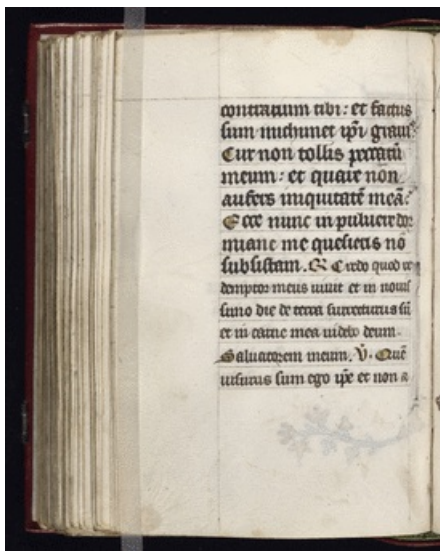 contrarium tibi: et factus
sum michimet ip̄i grauis
Cur non tollis peccatū
meum: et quare non
aufers iniquitatē meā:
Ecce nunc in puluere dor
miam et si me quesieris nō
subsistam. R Credo quod re
demptor meus uiuit et in nouis
simo die de terra surrecturus sū
et in carne mea uidebo deum
Saluatorem meum. V. Quē
uisurus sum ego ip̄e et non a